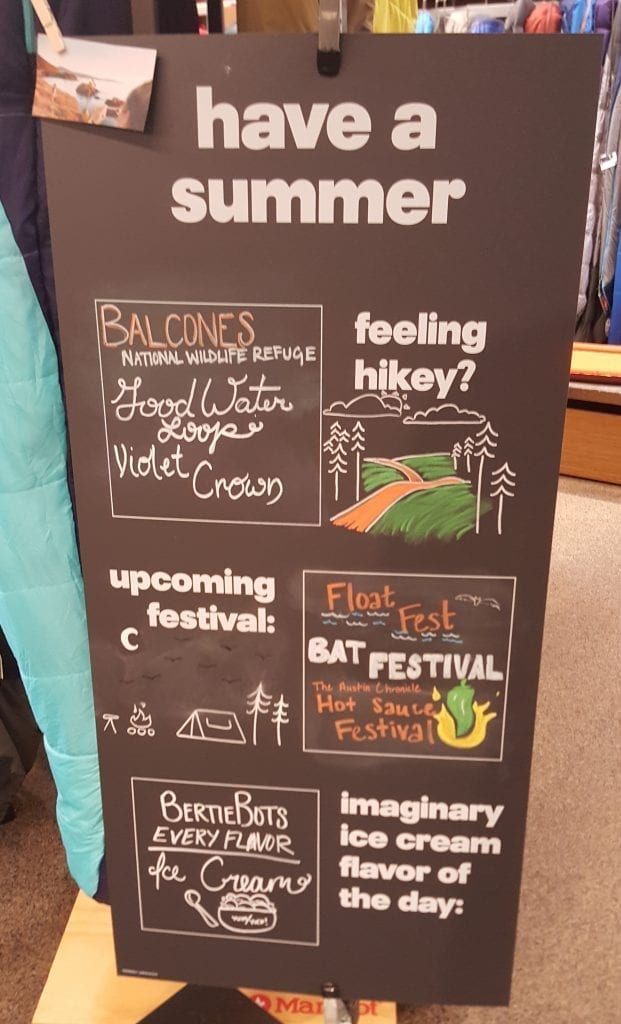 have a
summer
BALCONES
NATIONAL WILDLIFE REFUGE
Good Water
Loop
Violet
Crown
feeling
hikey?
upcoming
festival:
Float
Fest
BAT FESTIVAL
The Austin Chronicle
Hot Sauce
Festival
BERTIEBOTS
EVERY FLAVOR
Ice Cream
imaginary
ice cream
flavor of
the day: